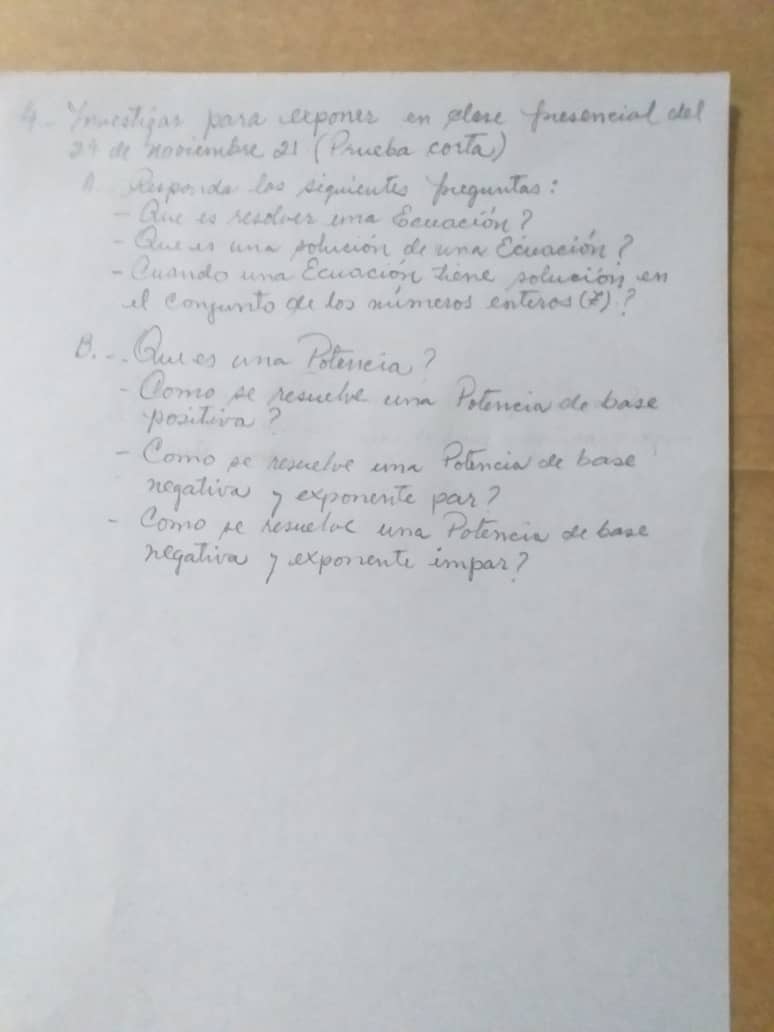 4.- Investigar para exponer en clase presencial del
24 de noviembre 21 (Prueba corta)
A. Responda las siguientes preguntas:
- Que es resolver una Ecuación?
- Que es una solución de una Ecuación?
- Cuando una Ecuación tiene solución en
el conjunto de los números enteros (Z)?
B. - Que es una Potencia?
- Como se resuelve una Potencia de base
positiva?
- Como se resuelve una Potencia de base
negativa y exponente par?
- Como se resuelve una Potencia de base
negativa y exponente impar?